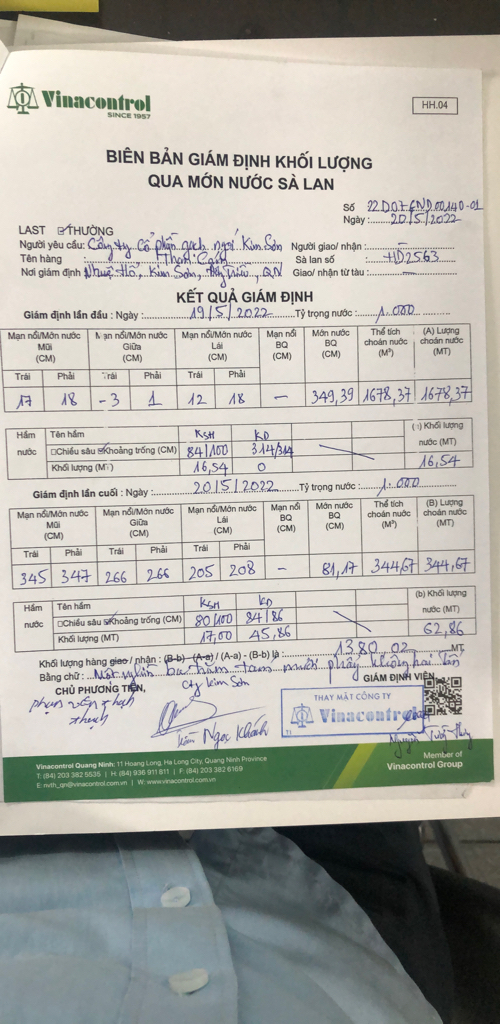 Vinacontrol
SINCE 1957
HH.04
BIÊN BẢN GIÁM ĐỊNH KHỐI LƯỢNG
QUA MỚN NƯỚC SÀ LAN
Số 22D07GND00140-01
Ngày : 20/5/2022
LAST ☑THƯỜNG
Người yêu cầu: Công ty Cổ phần gạch ngói Kim Sơn Người giao/ nhận : –
Tên hàng : Than Cám Sà lan số : HD2563
Nơi giám định Nhuệ Hổ, Kim Sơn, QN Giao/ nhận từ tàu : –
KẾT QUẢ GIÁM ĐỊNH
Giám định lần đầu : Ngày : 19/5/2022 Tỷ trọng nước : 1.000
Mạn nổi/Mớn nước Mũi (CM) Mạn nổi/Mớn nước Giữa (CM) Mạn nổi/Mớn nước Lái (CM) Mạn nổi BQ (CM) Mớn nước BQ (CM) Thể tích choán nước (M³) (A) Lượng choán nước (MT)
Trái Phải Trái Phải Trái Phải
17 18 -3 1 12 18 – 349,39 1678,37 1678,37
Hầm nước Tên hầm KSH KD (a) Khối lượng nước (MT)
☐Chiều sâu ☑Khoảng trống (CM) 84/100 314/314
Khối lượng (MT) 16,54 0 16,54
Giám định lần cuối : Ngày : 20/5/2022 Tỷ trọng nước : 1.000
Mạn nổi/Mớn nước Mũi (CM) Mạn nổi/Mớn nước Giữa (CM) Mạn nổi/Mớn nước Lái (CM) Mạn nổi BQ (CM) Mớn nước BQ (CM) Thể tích choán nước (M³) (B) Lượng choán nước (MT)
Trái Phải Trái Phải Trái Phải
345 347 266 266 205 208 – 81,17 344,67 344,67
Hầm nước Tên hầm KSH KD (b) Khối lượng nước (MT)
☐Chiều sâu ☑Khoảng trống (CM) 80/100 84/86
Khối lượng (MT) 17,00 45,86 62,86
Khối lượng hàng giao / nhận : (B-b) - (A-a) / (A-a) - (B-b) là : 1380,02 MT.
Bằng chữ : Một nghìn ba trăm tám mươi phẩy không hai tấn
CHỦ PHƯƠNG TIỆN, cty Kim Sơn GIÁM ĐỊNH VIÊN
THAY MẶT CÔNG TY
Vinacontrol
Ngọc Khánh
Nguyễn
Vinacontrol Quang Ninh: 11 Hoang Long, Ha Long City, Quang Ninh Province
T: (84) 203 382 5535 | H: (84) 936 911 811 | F: (84) 203 382 6169
E: nvth_qn@vinacontrol.com.vn | W: www.vinacontrol.com.vn
Member of
Vinacontrol Group